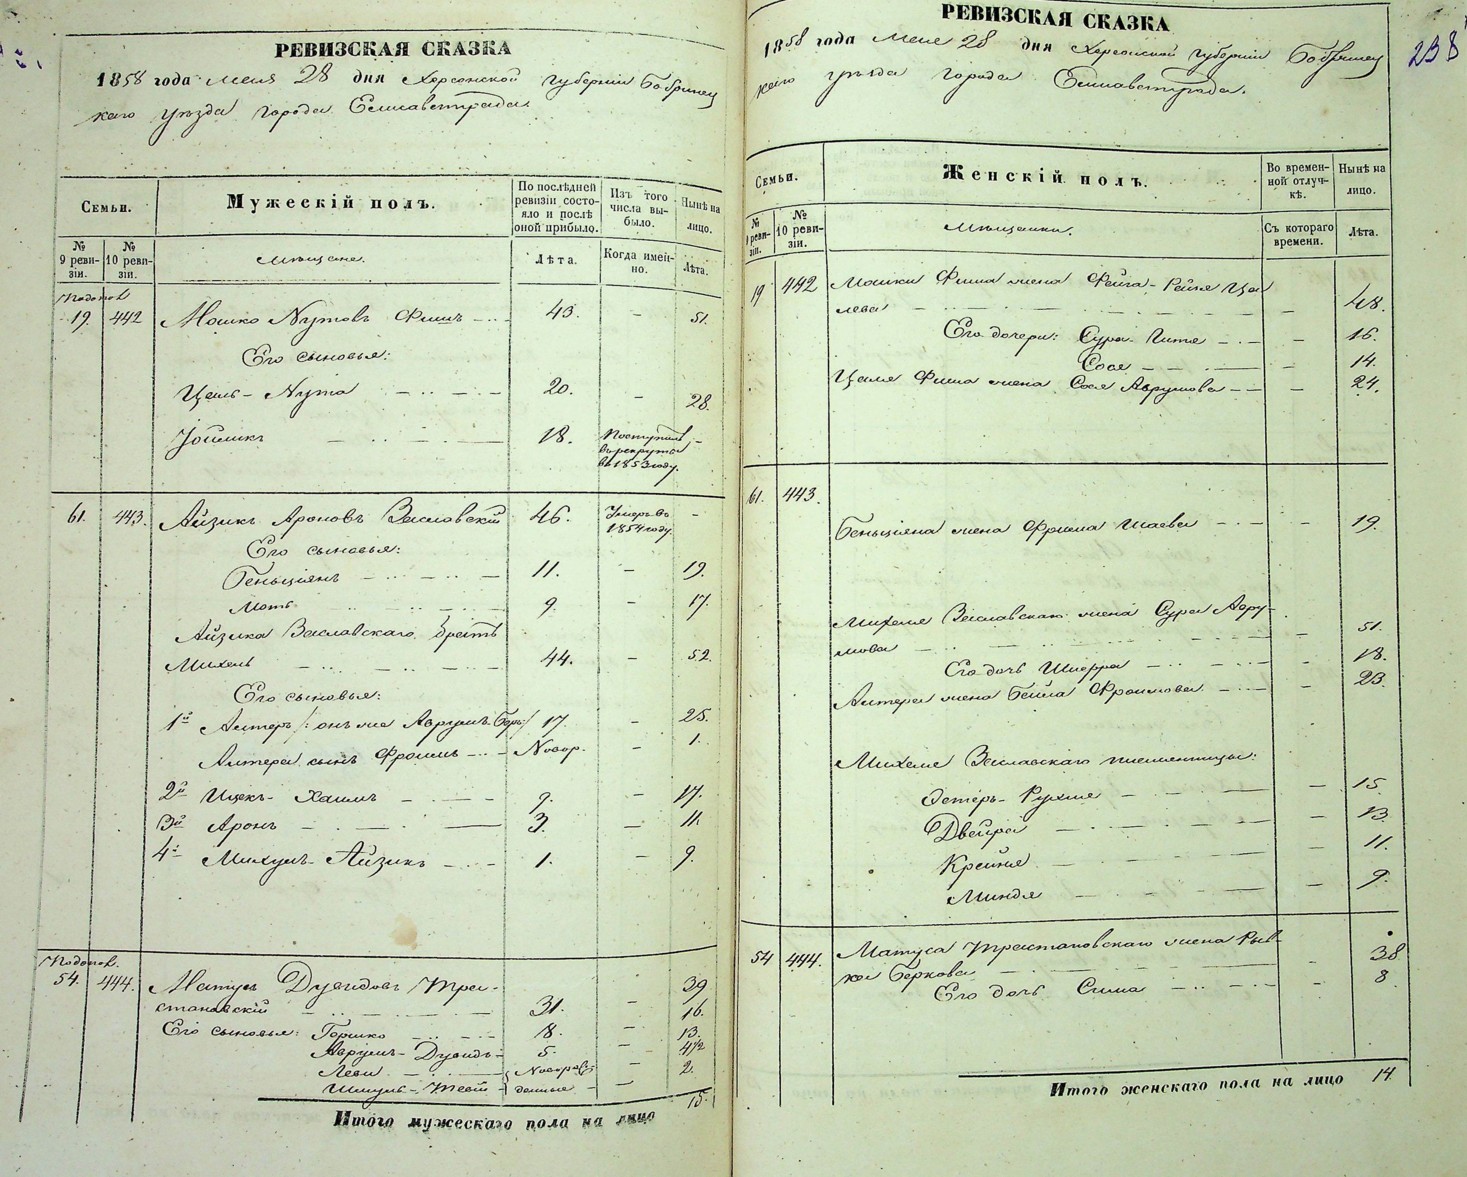 РЕВИЗСКАЯ СКАЗКА
1858 года Мая 28 дня Херсонской губернии Бобринец
каго уезда города Елисаветграда.
Семьи.
Мужескій полъ.
По послѣдней ревизіи состояло и послѣ оной прибыло.
Изъ того числа выбыло.
Нынѣ на лицо.
№ 9 ревизіи.
№ 10 ревизіи.
Мѣщане.
Лѣта.
Когда именно.
Лѣта.
19. 442 Мошко Нутовъ Фишъ 43. – 51.
Его сыновья:
Цаль-Нута 20. – 28.
Іойликъ 18. Поступилъ –
въ рекруты
въ 1853 году.
61. 443. Айзикъ Ароновъ Заславскій 46. Умеръ въ –
1854 году.
Его сыновья:
Беньціянъ 11. – 19.
Моть 9. – 17.
Айзика Заславскаго братъ
Михель 44. – 52.
Его сыновья:
1й Алтеръ /: онъ же Аврумъ-Беръ :/ 17. – 25.
Алтера сынъ Фроимъ Новор. – 1.
2й Ицекъ-Хаимъ 9. – 17.
3й Аронъ 3. – 11.
4й Михулъ-Айзикъ 1. – 9.
54. 444. Матусъ Дувидовъ Трас- 39
становскій 31. – 16.
Его сыновья: Гершко 8. – 13.
Аврумъ-Дувидъ 5. – 4½
Леви Новорож- – 2.
Шмуль- денные –
Итого мужескаго пола на лицо 15.
РЕВИЗСКАЯ СКАЗКА
1858 года Мая 28 дня Херсонской губерніи Бобринец
каго уѣзда города Елисаветграда.
238
Семьи.
Женскій полъ.
Во временной отлучкѣ.
Нынѣ на лицо.
№ 9 ревизіи.
№ 10 ревизіи.
Мѣщанки.
Съ котораго времени.
Лѣта.
19 442 Мошки Фиша жена Фейга-Рейзя Ца
лева – 48.
Его дочери: Сура-Гитя – 16.
Сося – 14.
Цаля Фиша жена Сося Аврумова – 24.
61. 443.
Беньціяна жена Фрима Шаева – 19.
Михеля Заславскаго жена Сура Авру-
мова – 51.
Его дочь Шперра – 18.
Алтера жена Бейла Фроимова – 23.
Михеля Заславскаго племянницы:
Эстеръ-Рухля – 15.
Двейра – 13.
Крейня – 11.
Миндя – 9.
54 444. Матуса Трастановскаго жена Рыв-
ка Беркова – 38.
Его дочь Сима – 8.
Итого женскаго пола на лицо 14.